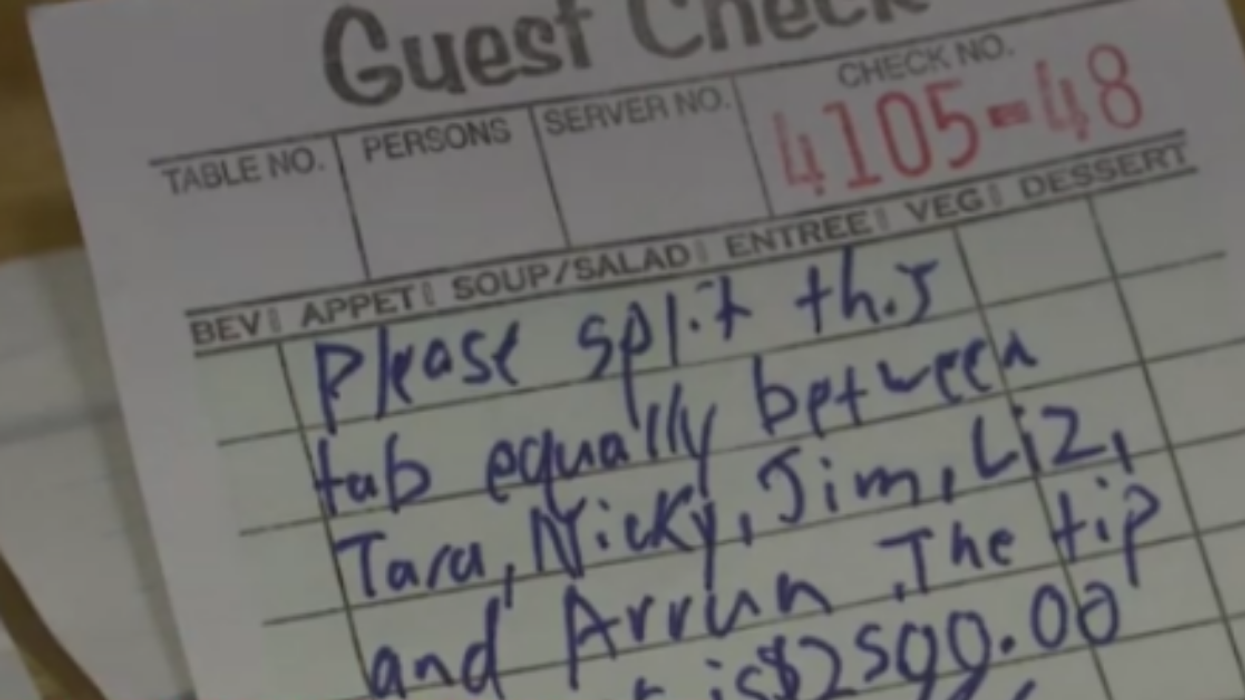 Guest Check
CHECK NO.
TABLE NO. PERSONS SERVER NO. 4105-48
BEV APPET SOUP/SALAD ENTREE VEG DESSERT
Please split this
tab equally between
Tara, Nicky, Jim, Liz,
and Arrun. The tip
is $2500.00